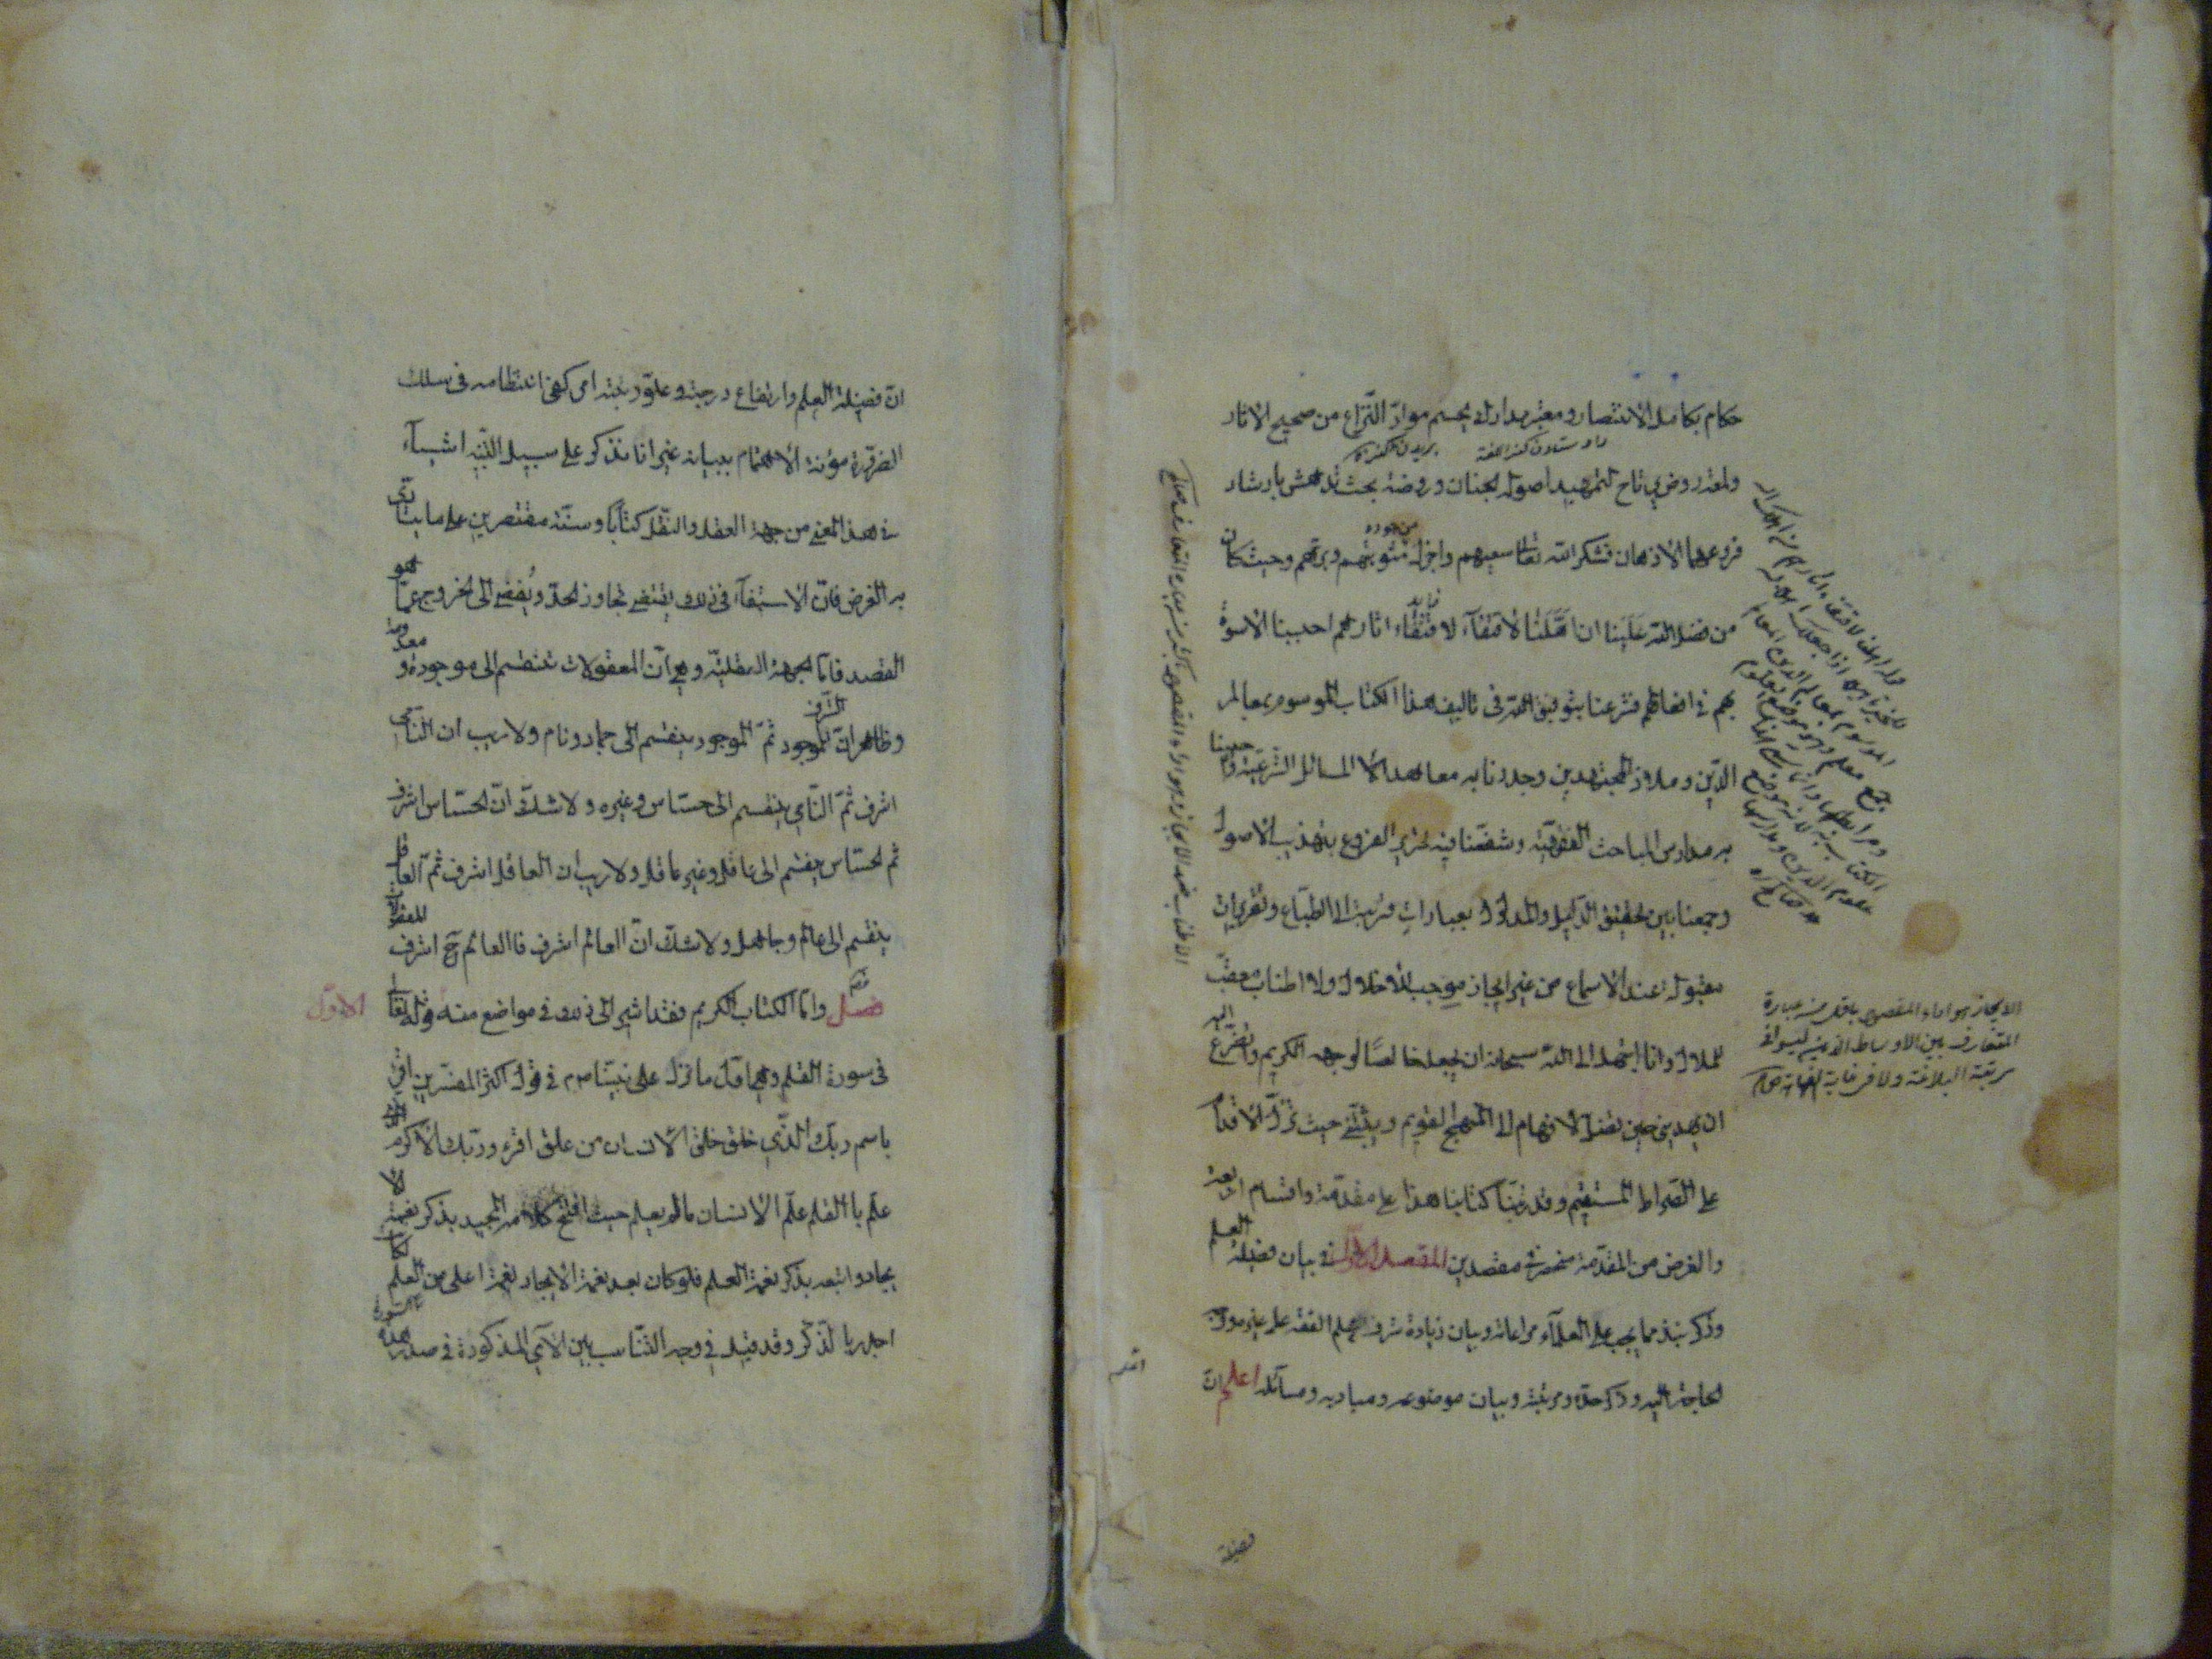 حكام بكامل الانتصار ومعتبر مدارك يحسم مواد النزاع من صحيح الاثار
ولمعة روض يرتاح لتمهيد اصوله الجنان وروضة بحث تدهش بارشاد
فروعها الاذهان فشكر الله تعالى سعيهم واجزل من جوده مثوبتهم وبرهم وحيث كان
من فضل الله علينا ان اهلنا لاقتفاء اثارهم احببنا الاسوة
بهم في افعالهم فشرعنا بتوفيق الله في تاليف هذا الكتاب الموسوم بمعالم
الدين وملاذ المجتهدين وجددنا به معاهد المسائل الشرعية واحيينا
به مدارس المباحث الفقهية وشفعنا فيه تحرير الفروع بتهذيب الاصول
وجمعنا بين تحقيق الدليل والمدلول بعبارات قريبة الى الطباع وتقريرات
مقبولة عند الاسماع من غير ايجاز موجب للاخلال ولا اطناب معقب
للملال وانا ابتهل الى الله سبحانه ان يجعله خالصا لوجهه الكريم واتضرع اليه
ان يهديني حين تضل الافهام الى المنهج القويم ويثبتني حيث تزل الاقدام
على الصراط المستقيم وقد رتبنا كتابنا هذا على مقدمة واقسام اربعة
والغرض من المقدمة منحصر في مقصدين المقصد الاول في بيان فضيلة العلم
وذكر نبذ مما يجب على العلماء مراعاته وبيان زيادة شرف علم الفقه على غيره ووجه
الحاجة اليه وذكر حده ومرتبته وبيان موضوعه ومباديه ومسائله اعلم ان
الايجاز هو اداء المقصود باقل من عبارة
المتعارف بين الاوساط الذين ليسوا في
مرتبة البلاغة ولا في غاية الفهاهة
فضيلة
ان فضيلة العلم وارتفاع درجته وعلو رتبته امر كفى انتظامه في سلك
الضرورة مؤنة الاهتمام ببيانه غير انا نذكر على سبيل التنبيه اشياء
في هذا المعنى من جهة العقل والنقل كتابا وسنة مقتصرين على ما يتادى
به الغرض فان الاستيفاء في ذلك يقتضي تجاوز الحد ويفضي الى الخروج عما هو
القصد فاما الجهة العقلية وهي ان المعقولات تنقسم الى موجودة ومعدومة
وظاهر ان الشرف للموجود ثم الموجود ينقسم الى جماد ونام ولا ريب ان النامي
اشرف ثم النامي ينقسم الى حساس وغيره ولا شك ان الحساس اشرف
ثم الحساس ينقسم الى عاقل وغير عاقل ولا ريب ان العاقل اشرف ثم العاقل
ينقسم الى عالم وجاهل ولا شك ان العالم اشرف فالعالم ح اشرف المعقولات
فصل واما الكتاب الكريم فقد اشير الى ذلك في مواضع منه الاول قوله تعالى
في سورة القلم وهي اول ما نزل على نبينا ص م في قول اكثر المفسرين اقرء
باسم ربك الذي خلق خلق الانسان من علق اقرء وربك الاكرم الذي
علم بالقلم علم الانسان ما لم يعلم حيث افتتح كلامه المجيد بذكر نعمة الا
يجاد واتبعه بذكر نعمة العلم فلو كان بعد نعمة الايجاد نعمة اعلى من العلم لكانت
اجدر بالذكر وقد قيل في وجه التناسب بين الآي المذكورة في صدر هذه السورة